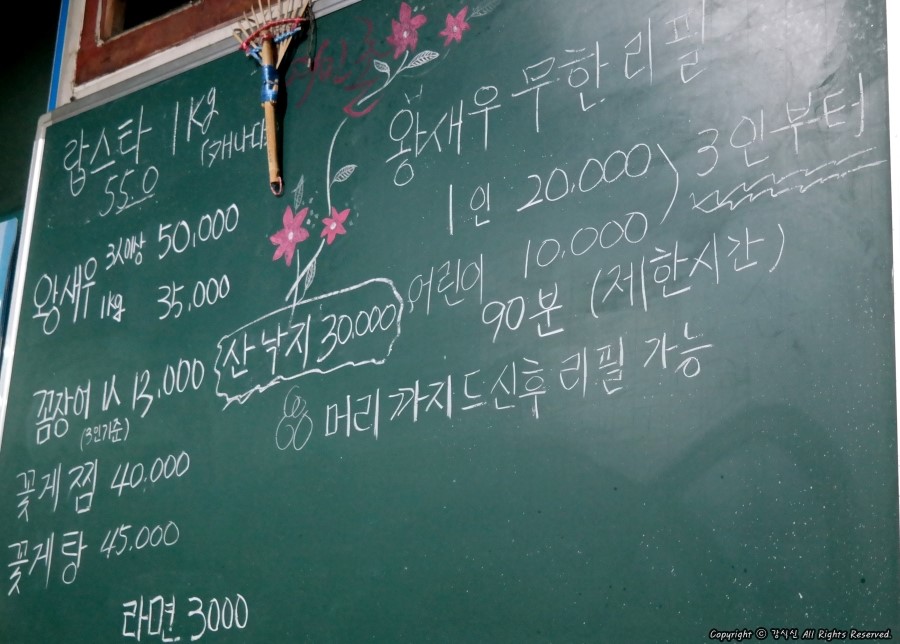 랍스타 1Kg
(캐나다
55.0
왕새우 3人이상 50,000
1kg 35,000
꼼장어 1人 13,000
(3인기준)
꽃게찜 40.000
꽃게탕 45.000
라면 3000
산낙지 30.000
왕새우 무한리필
1인 20.000 ) 3인부터
어린이 10.000
90분 (제한시간)
머리까지 드신후 리필 가능
Copyright ⓒ 강식신 All Rights Reserved.